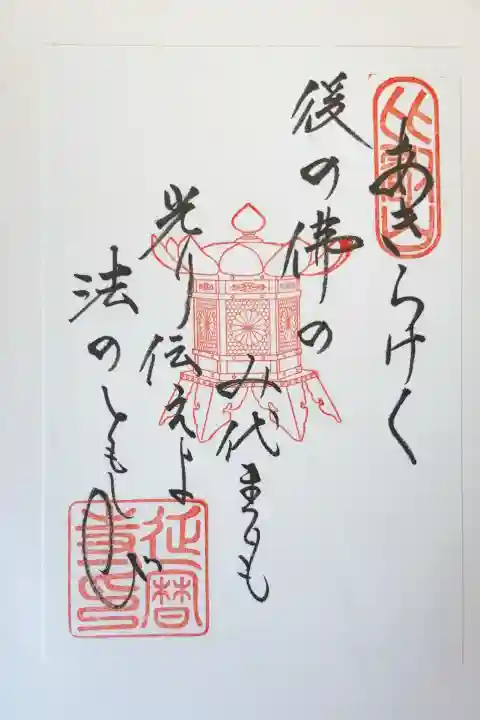 あきらけく
後の佛の
み代までも
光り伝えよ
法のともしび
比叡山
延暦